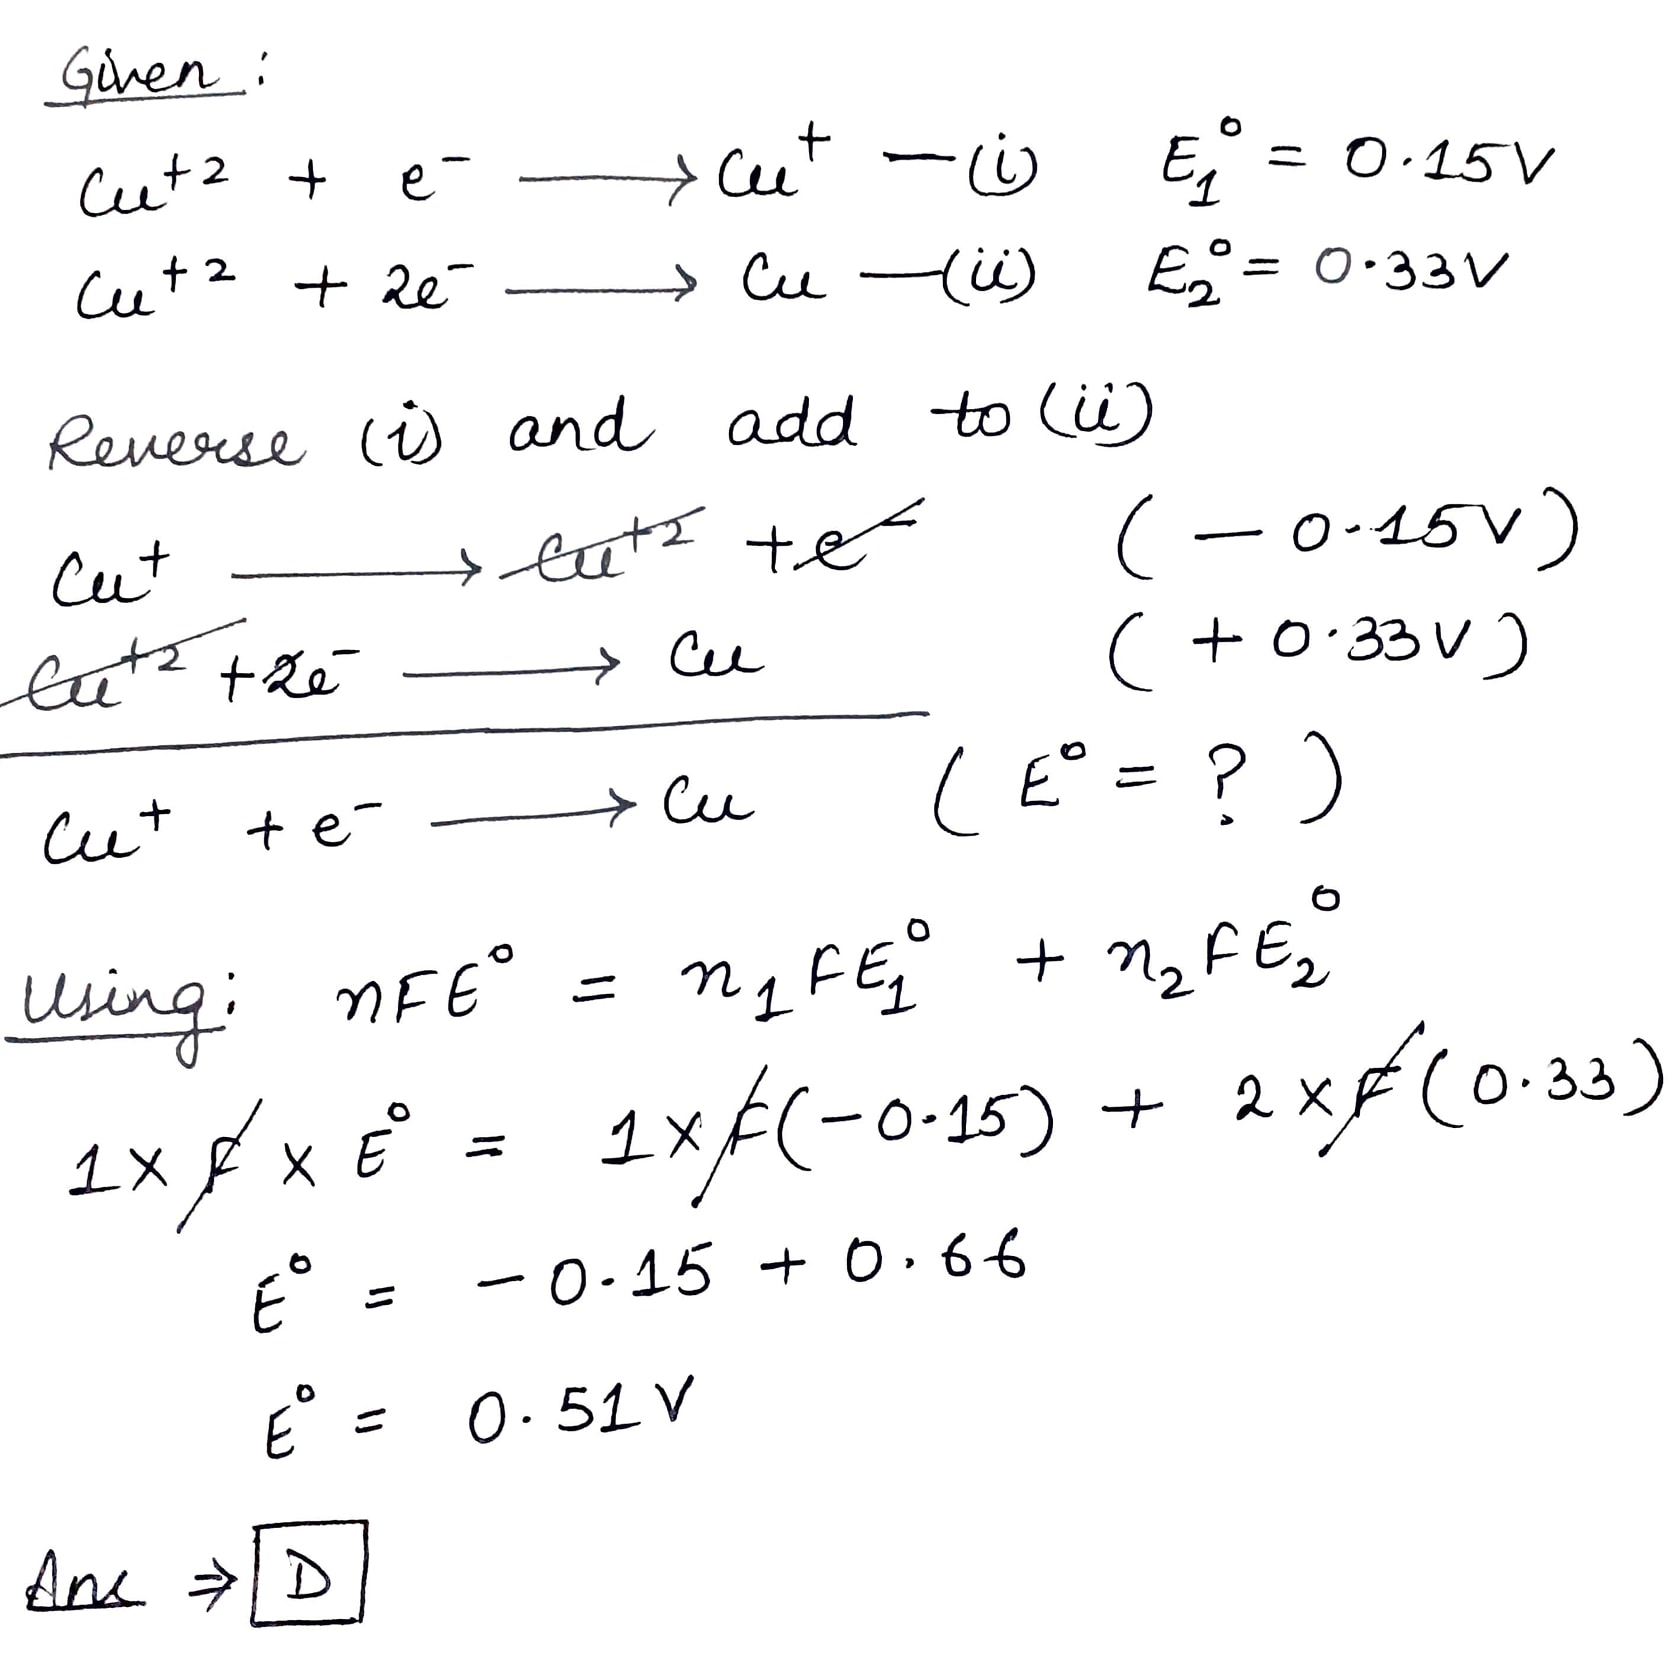 Given :
Cu⁺² + e⁻ ⟶ Cu⁺ —(i) E₁° = 0.15V
Cu⁺² + 2e⁻ ⟶ Cu —(ii) E₂° = 0.33V
Reverse (i) and add to (ii)
Cu⁺ ⟶ Cu⁺² + e⁻ ( – 0.15V )
Cu⁺² + 2e⁻ ⟶ Cu ( + 0.33V )
Cu⁺ + e⁻ ⟶ Cu ( E° = ? )
Using: nFE° = n₁FE₁° + n₂FE₂°
1 x F x E° = 1 x F(-0.15) + 2 x F(0.33)
E° = -0.15 + 0.66
E° = 0.51V
Ans ⇒ D